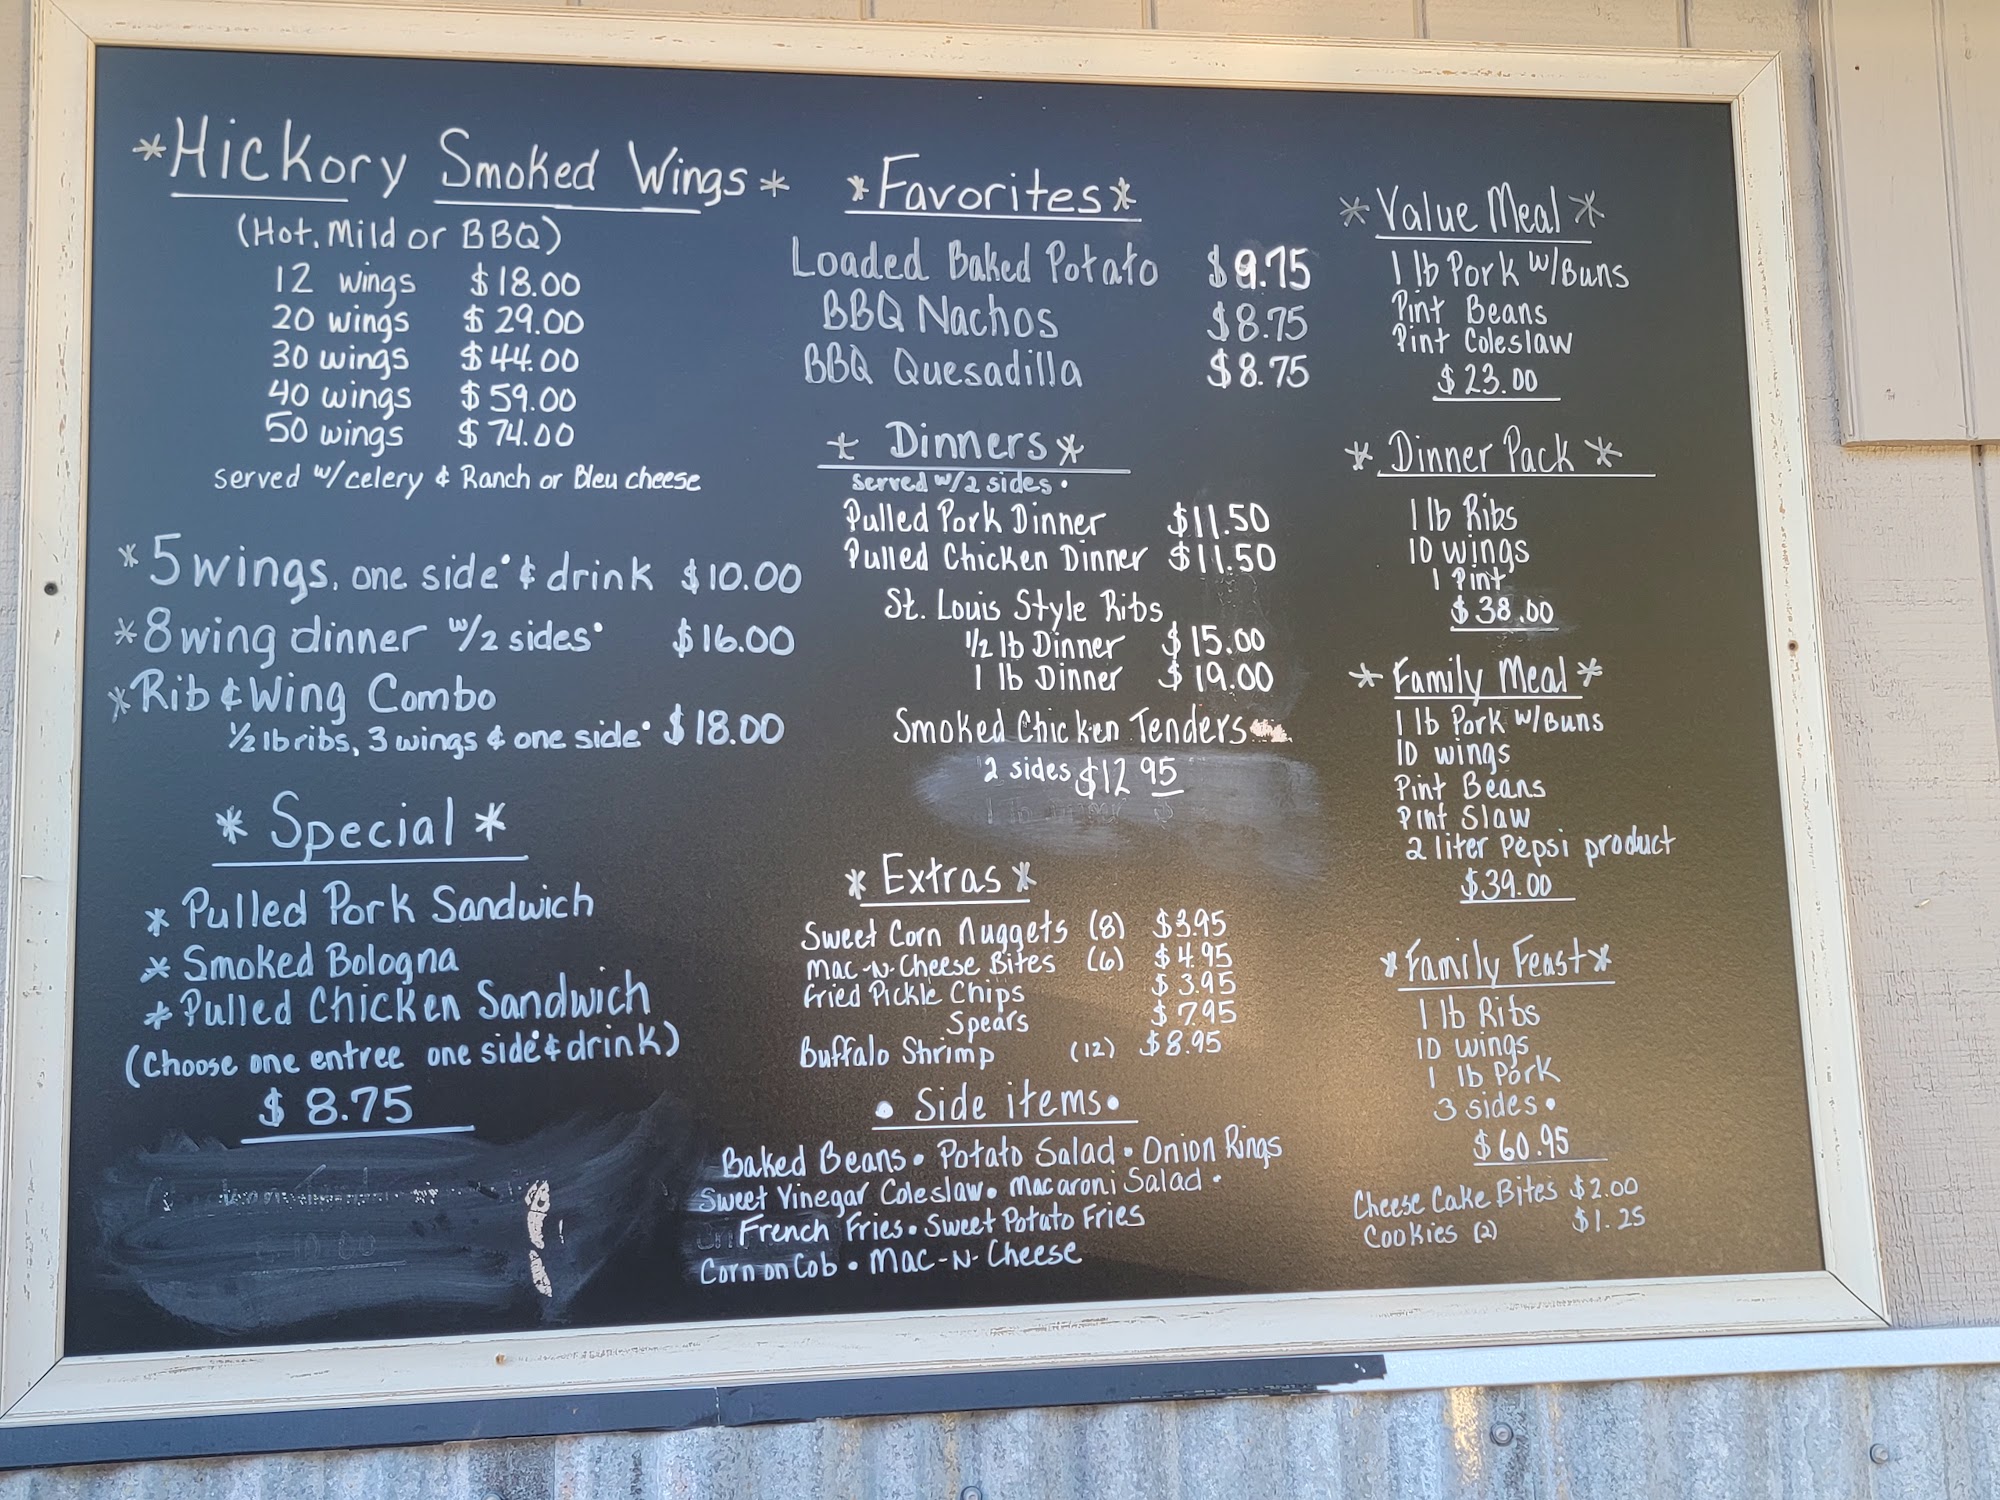 *Hickory Smoked Wings*
(Hot, Mild or BBQ)
12 wings $18.00
20 wings $29.00
30 wings $44.00
40 wings $59.00
50 wings $74.00
served w/celery & Ranch or Bleu cheese
*5 wings, one side• & drink $10.00
*8 wing dinner w/2 sides• $16.00
*Rib & Wing Combo
1/2 lb ribs, 3 wings & one side• $18.00
*Special*
*Pulled Pork Sandwich
*Smoked Bologna
*Pulled Chicken Sandwich
(Choose one entree one side• & drink)
$8.75
*Favorites*
Loaded Baked Potato $9.75
BBQ Nachos $8.75
BBQ Quesadilla $8.75
*Dinners*
served w/2 sides•
Pulled Pork Dinner $11.50
Pulled Chicken Dinner $11.50
St. Louis Style Ribs
1/2 lb Dinner $15.00
1 lb Dinner $19.00
Smoked Chicken Tenders
2 sides $12 95
*Extras*
Sweet Corn Nuggets (8) $3.95
Mac-N-Cheese Bites (6) $4.95
Fried Pickle Chips $3.95
Spears $7.95
Buffalo Shrimp (12) $8.95
• Side items•
Baked Beans• Potato Salad• Onion Rings
Sweet Vinegar Coleslaw• Macaroni Salad•
French Fries• Sweet Potato Fries
Corn on Cob • Mac-N-Cheese
*Value Meal*
1 lb Pork w/Buns
Pint Beans
Pint Coleslaw
$23.00
*Dinner Pack*
1 lb Ribs
10 wings
1 Pint
$38.00
*Family Meal*
1 lb Pork w/Buns
10 wings
Pint Beans
Pint Slaw
2 liter Pepsi product
$39.00
*Family Feast*
1 lb Ribs
10 wings
1 lb Pork
3 sides•
$60.95
Cheese Cake Bites $2.00
Cookies (2) $1.25